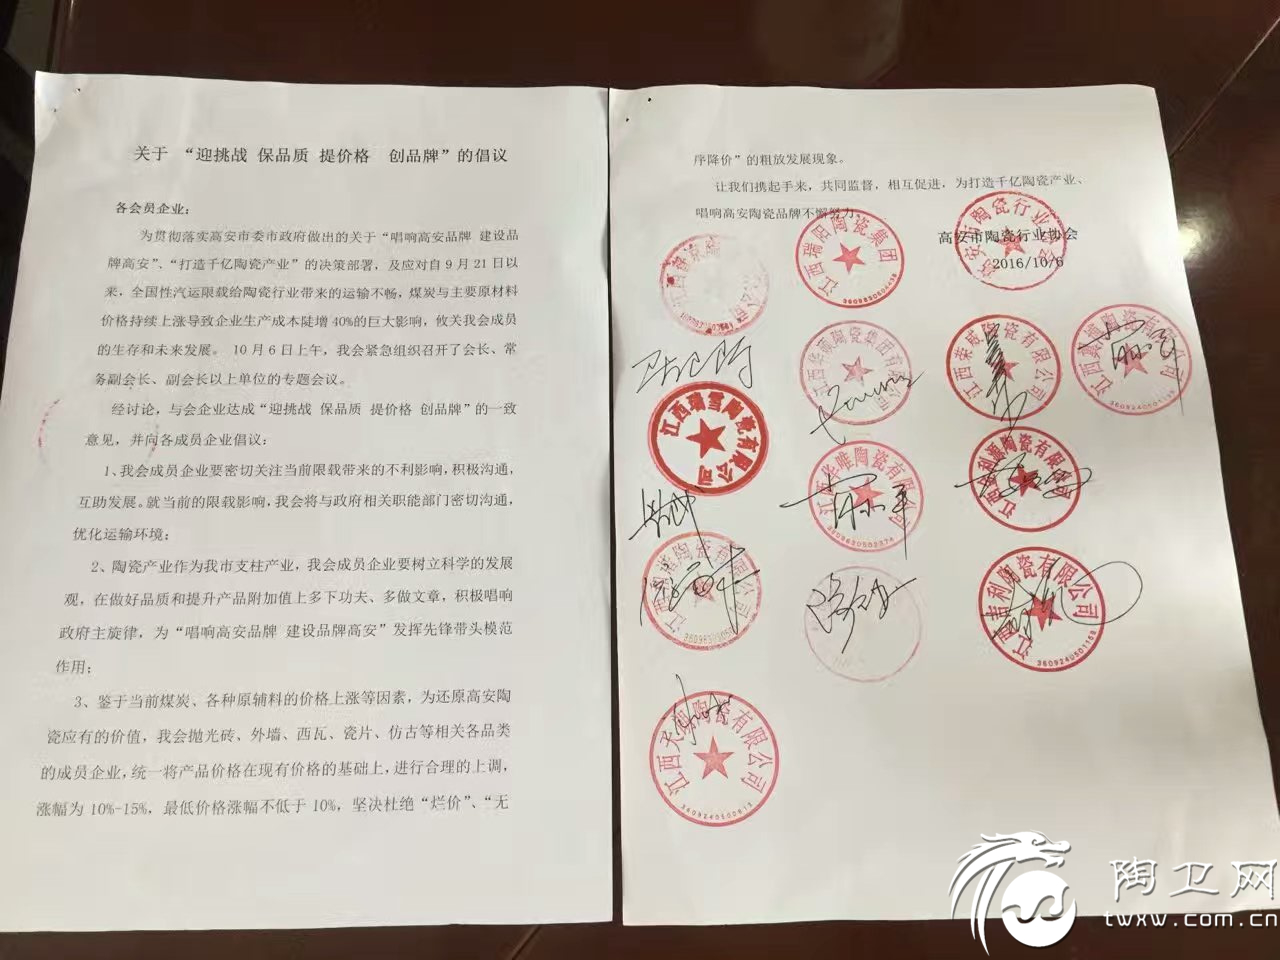 关于 “迎挑战 保品质 提价格 创品牌”的倡议
各会员企业：
为贯彻落实高安市委市政府做出的关于“唱响高安品牌 建设品
牌高安”、“打造千亿陶瓷产业”的决策部署，及应对自9月21日以
来，全国性汽运限载给陶瓷行业带来的运输不畅，煤炭与主要原材料
价格持续上涨导致企业生产成本陡增40%的巨大影响，攸关我会成员
的生存和未来发展。 10月6日上午，我会紧急组织召开了会长、常
务副会长、副会长以上单位的专题会议。
经讨论，与会企业达成“迎挑战 保品质 提价格 创品牌”的一致
意见，并向各成员企业倡议：
1、我会成员企业要密切关注当前限载带来的不利影响，积极沟通，
互助发展。就当前的限载影响，我会将与政府相关职能部门密切沟通，
优化运输环境；
2、陶瓷产业作为我市支柱产业，我会成员企业要树立科学的发展
观，在做好品质和提升产品附加值上多下功夫、多做文章，积极唱响
政府主旋律，为“唱响高安品牌 建设品牌高安”发挥先锋带头模范
作用；
3、鉴于当前煤炭、各种原辅料的价格上涨等因素，为还原高安陶
瓷应有的价值，我会抛光砖、外墙、西瓦、瓷片、仿古等相关各品类
的成员企业，统一将产品价格在现有价格的基础上，进行合理的上调，
涨幅为10%-15%，最低价格涨幅不低于10%，坚决杜绝“烂价”、“无
序降价”的粗放发展现象。
让我们携起手来，共同监督，相互促进，为打造千亿陶瓷产业、
唱响高安陶瓷品牌不懈努力
高安市陶瓷行业协会
2016/10/6
江西瑞阳陶瓷集团
江西华硕陶瓷集团有限公司
江西荣威陶瓷有限公司
陶瓷有限公司
江西瑞雪陶瓷有限公司
江西华雎陶瓷有限公司
利顺陶瓷有限公司
陶瓷有限公司
江西吉利陶瓷有限公司
3609240501159
江西天湖陶瓷有限公司
陶卫网
twxw.com.cn